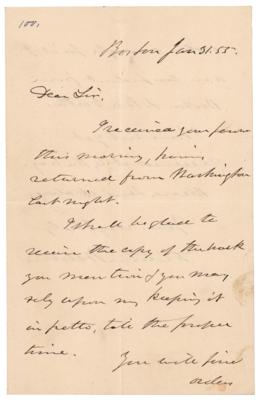 100,
Boston Jan 31. 55.
Dear Sir.
I received your favor
this morning, having
returned from Washington
last night.
I shall be glad to
receive the copy of the book
you mention & you may
rely upon my keeping it
in petto, till the proper
time.
You will find
orders